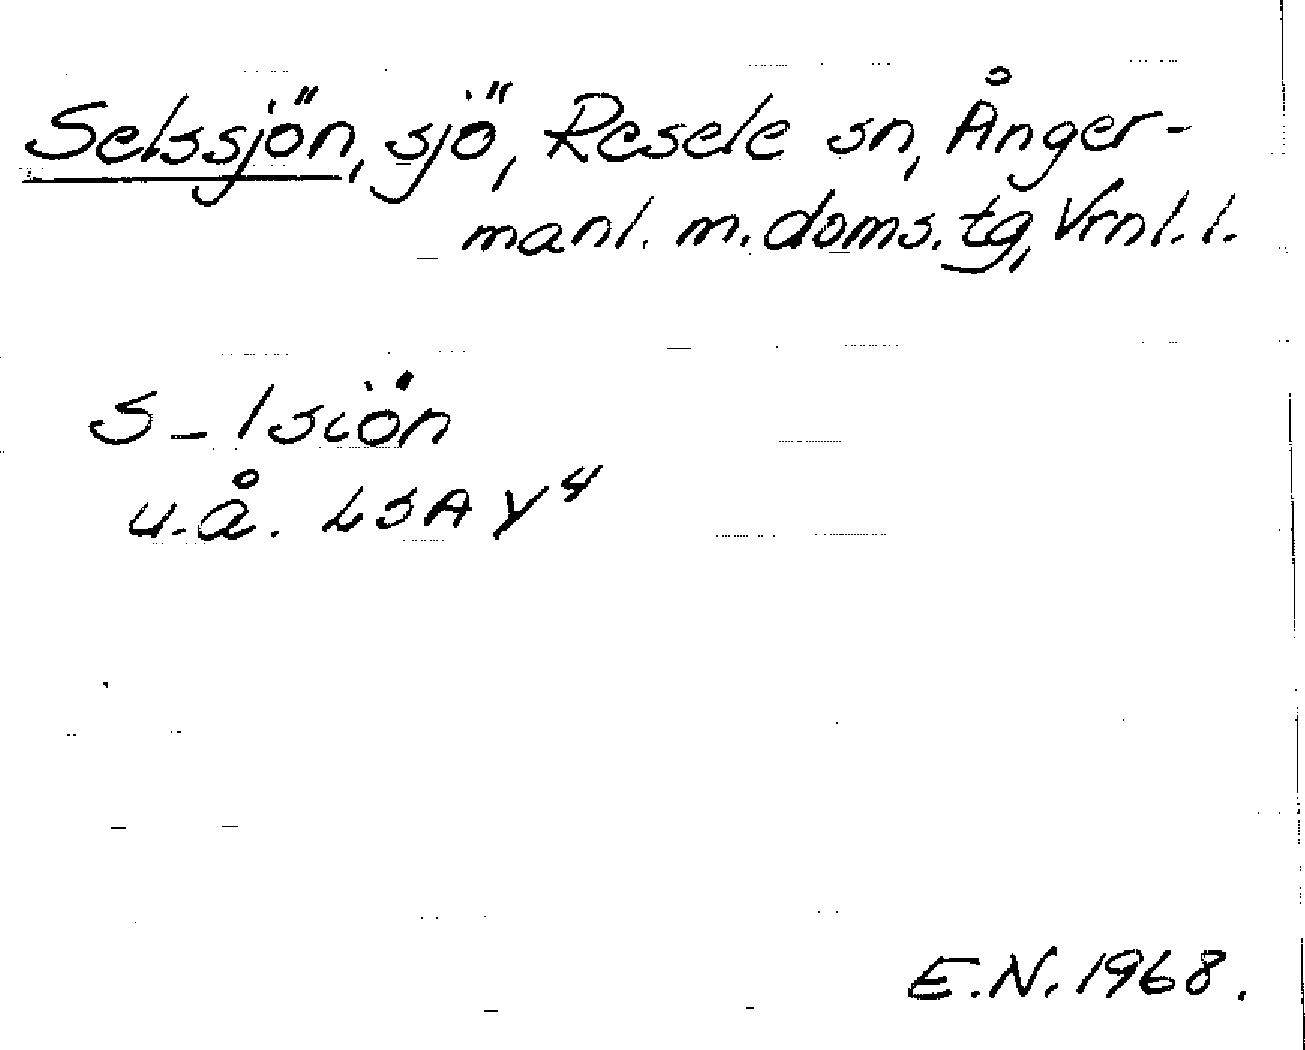 Selssjön, sjö, Resele sn, Ånger-
manl. m. doms. tg, Vrnl. l.
S-lsiön
u.å. LSA Y4
E.N. 1968.